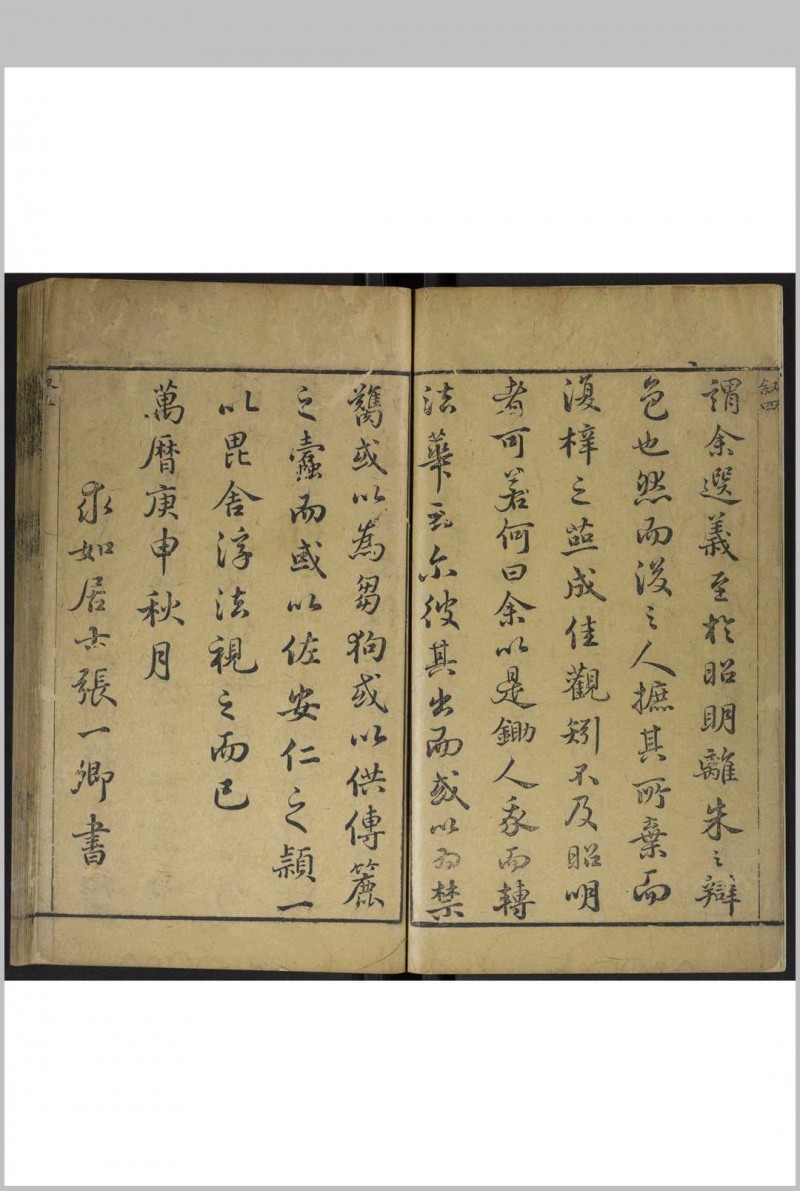 叙四
謂余選義至於昭明離朱之辯
色也然而後之人摭其所棄而
復梓之並成佳觀矧不及昭明
者可若何曰余以是鋤人我而轉
法華云尔彼其出而或以為禁
臠或以為芻狗或以供傅簏
之蠹而或以佐安仁之穎一
以毘舍浮法視之而已
萬曆庚申秋月
求如居士張一卿書